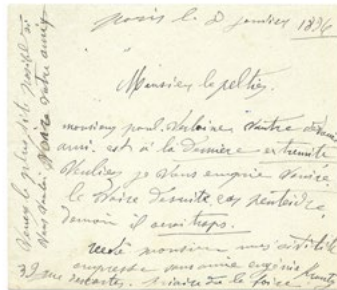 paris le 8 janvier 1896
Monsieur lepeltier.
monsieur paul Verlaine Vautre
ami. est a la Dernière extremité
Veulliez je vous emprie Venire
le Voire desuite cas peuteidre
demain il serait trops.
monsieur mes
empresse
39 rue descartes. priaire de le faire
Venez le plus tôt posible si
vous voulez Voire votre amis